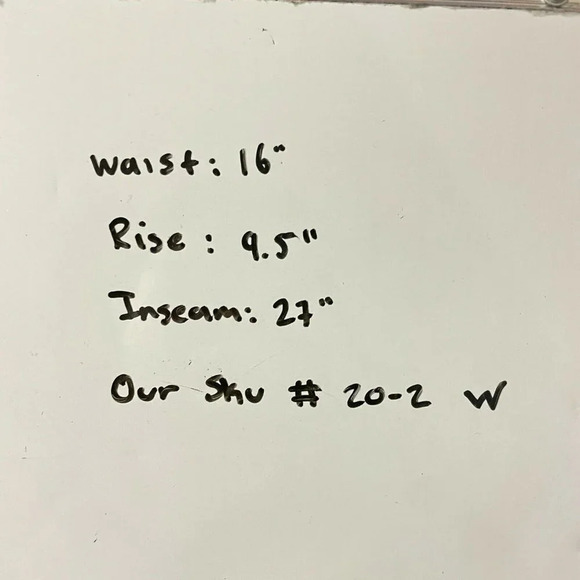 Waist: 16"
Rise: 9.5"
Inseam: 27"
Our Sku # 20-2 W